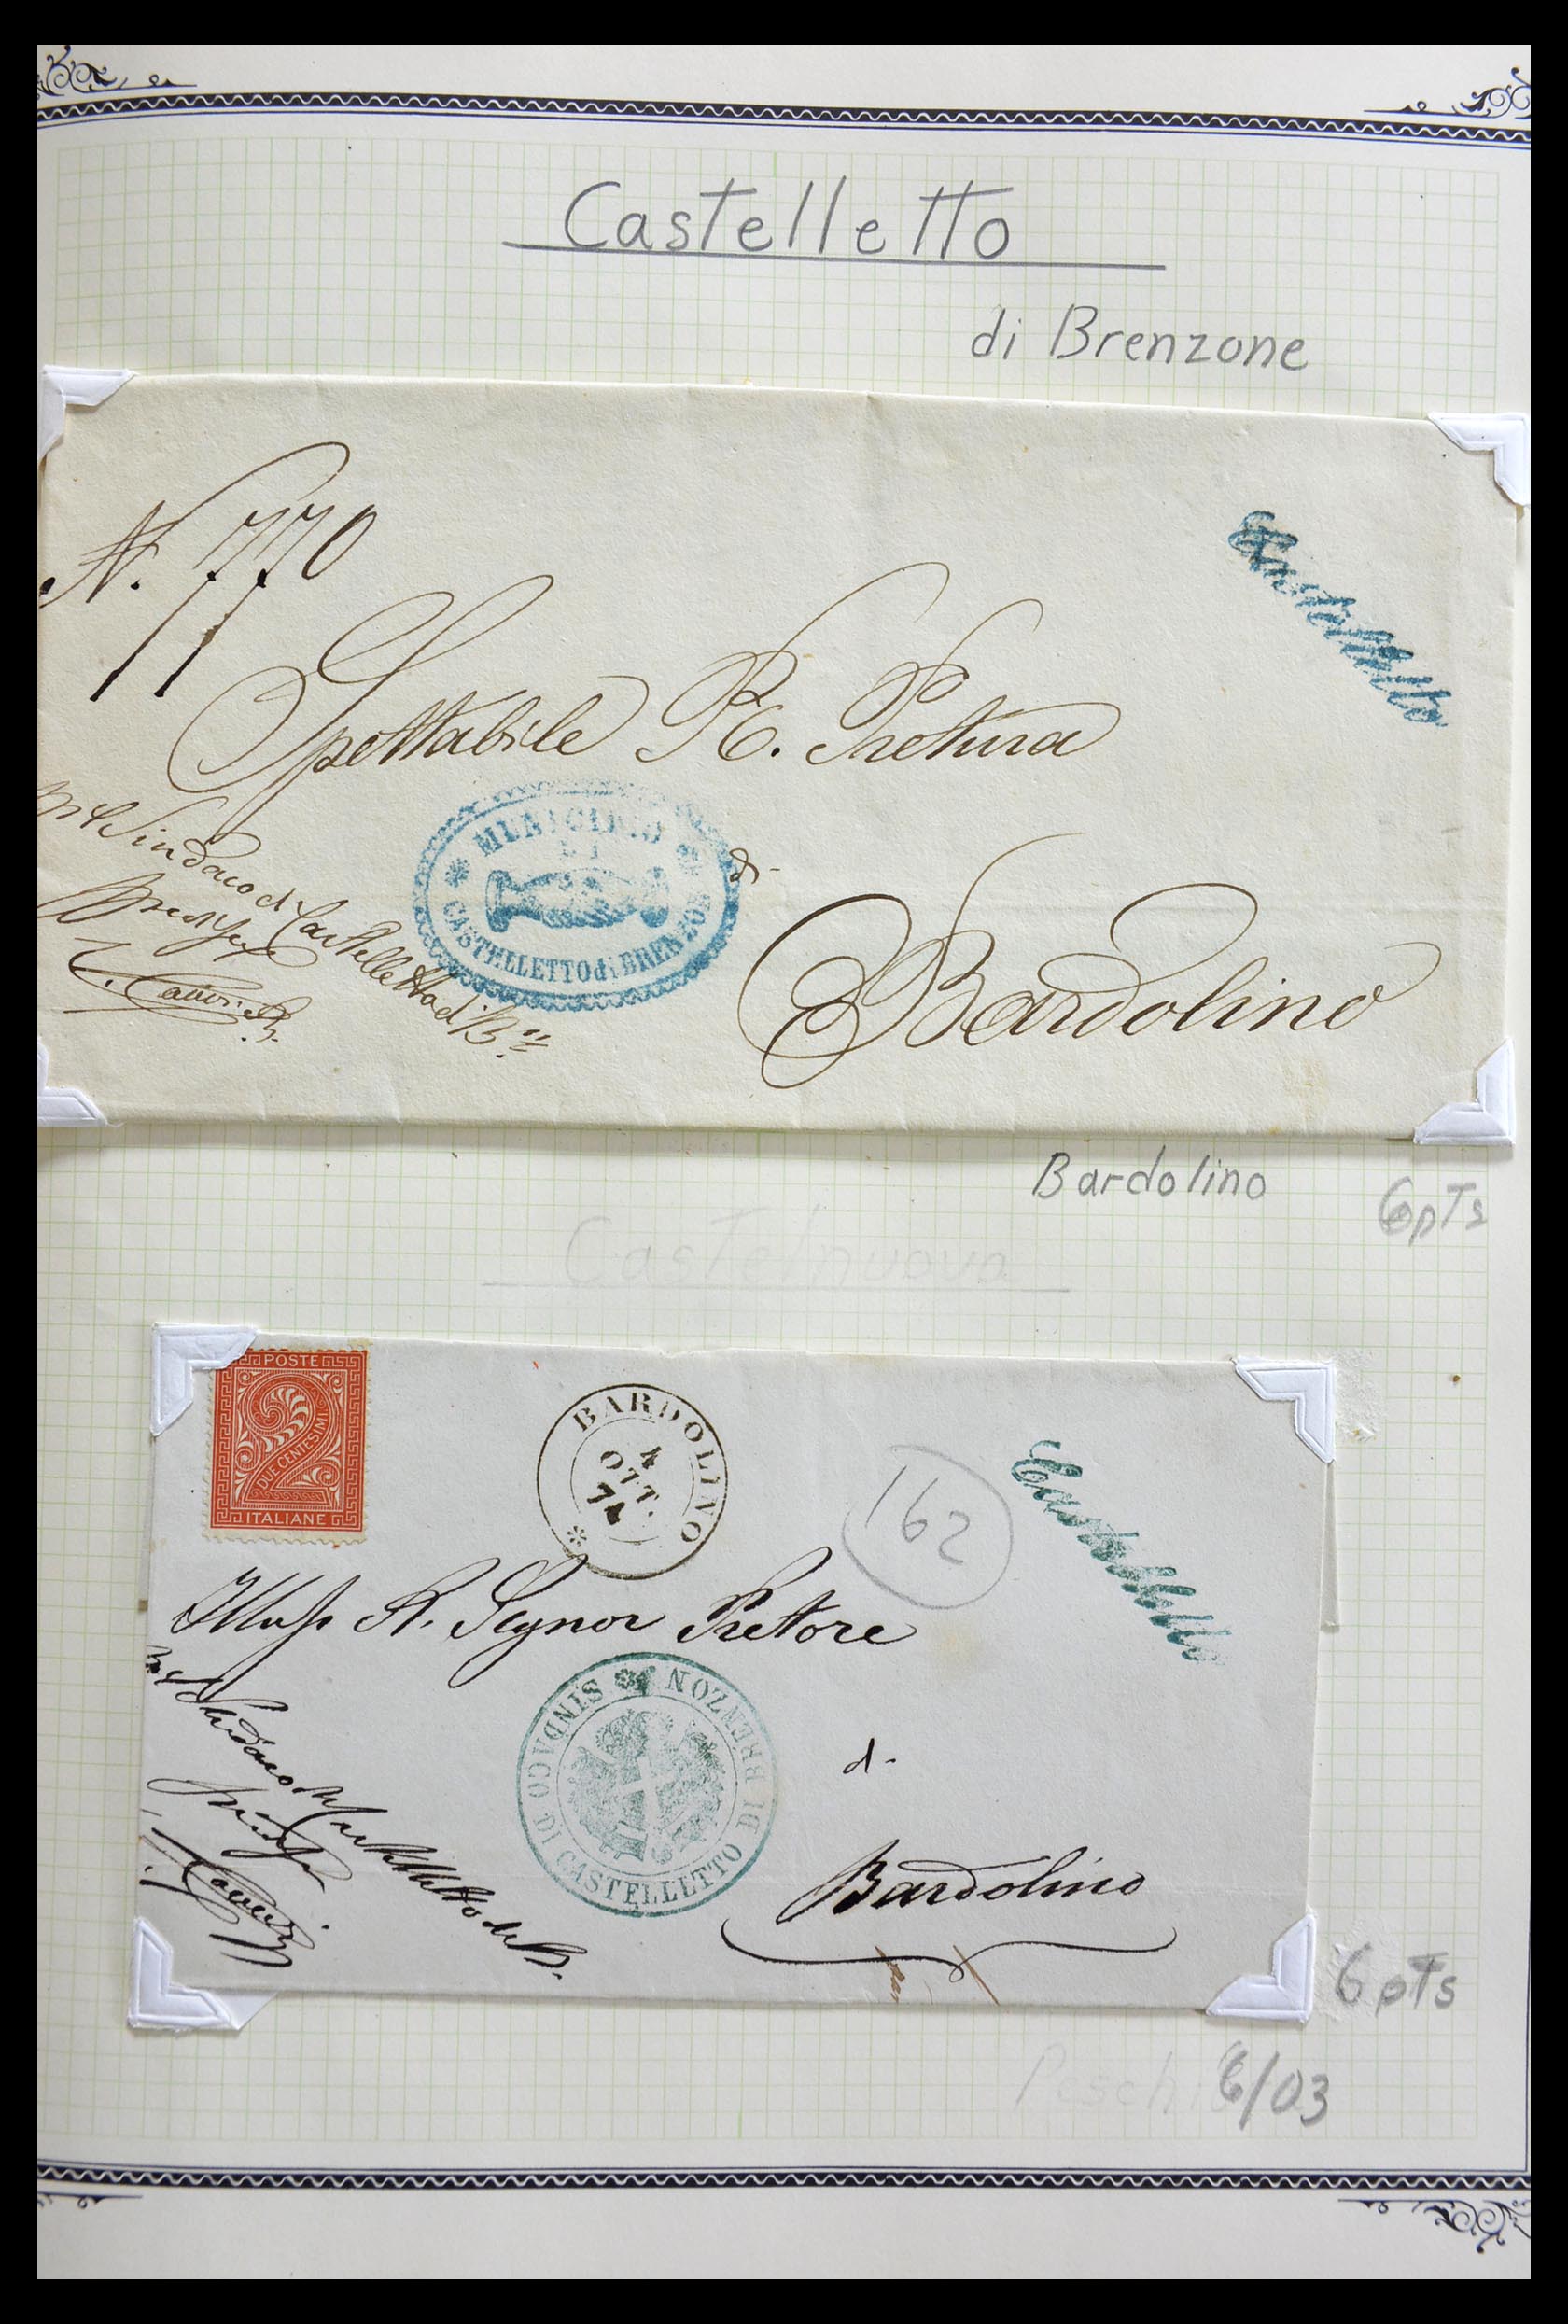 Castelletto
di Brenzone
N. 770
Castelletto
Spettabile R. Pretura
MUNICIPIO
DI
CASTELLETTO di BRENZON
di
Bardolino
Sindaco di Castelletto di B.
Bardolino
6pTs
Castelnuovo
POSTE
2
DUE CENTESIMI
ITALIANE
BARDOLINO
4
OTT.
74
162
Castelletto
R. Signor Pretore
SINDACO DI CASTELLETTO DI BRENZON
d.
Bardolino
Sindaco di Castelletto di B.
6 pTs
6/03